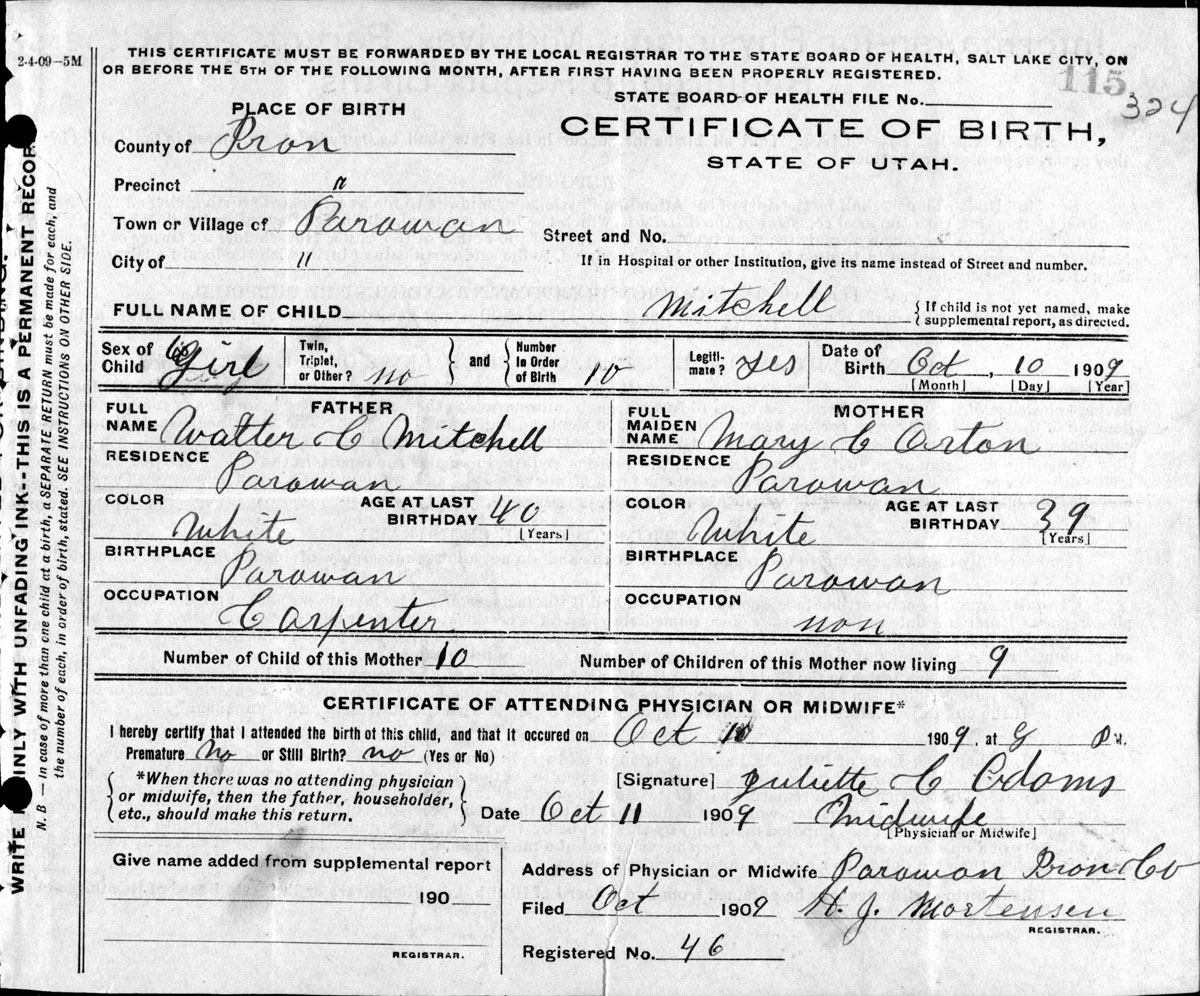 2-4-09--5M
THIS CERTIFICATE MUST BE FORWARDED BY THE LOCAL REGISTRAR TO THE STATE BOARD OF HEALTH, SALT LAKE CITY, ON
OR BEFORE THE 5TH OF THE FOLLOWING MONTH, AFTER FIRST HAVING BEEN PROPERLY REGISTERED.
115
324
STATE BOARD OF HEALTH FILE No.
PLACE OF BIRTH
CERTIFICATE OF BIRTH,
STATE OF UTAH.
County of Iron
Precinct "
Town or Village of Parowan
Street and No.
City of "
If in Hospital or other Institution, give its name instead of Street and number.
FULL NAME OF CHILD Mitchell { If child is not yet named, make
supplemental report, as directed.
Sex of Child Girl
Twin, Triplet, or Other? no } and { Number in Order of Birth 10
Legiti-mate? yes
Date of Birth Oct, 10 1909
[Month] [Day] [Year]
FATHER
FULL NAME Walter C Mitchell
RESIDENCE
Parowan
COLOR White
AGE AT LAST BIRTHDAY 40
[Years]
BIRTHPLACE
Parowan
OCCUPATION
Carpenter
MOTHER
FULL MAIDEN NAME Mary C Orton
RESIDENCE
Parowan
COLOR White
AGE AT LAST BIRTHDAY 39
[Years]
BIRTHPLACE
Parowan
OCCUPATION
non
Number of Child of this Mother 10 Number of Children of this Mother now living 9
CERTIFICATE OF ATTENDING PHYSICIAN OR MIDWIFE*
I hereby certify that I attended the birth of this child, and that it occured on Oct 1909, at M.
Premature no or Still Birth? no (Yes or No)
*When there was no attending physician
or midwife, then the father, householder,
etc., should make this return.
[Signature] Juliette C Adams
Date Oct 11 1909 Midwife
[Physician or Midwife]
Give name added from supplemental report
190
REGISTRAR.
Address of Physician or Midwife Parowan Iron Co
Filed Oct 1909 H. J. Mortensen
REGISTRAR.
Registered No. 46
WRITE INLY WITH UNFADING INK--THIS IS A PERMANENT RECORD
N. B.—In case of more than one child at a birth, a SEPARATE RETURN must be made for each, and
the number of each, in order of birth, stated. SEE INSTRUCTIONS ON OTHER SIDE.